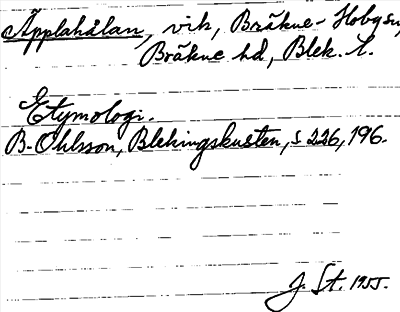 Äpplahålan, vik, Bräkne-Hobysn,
Bräkne hd, Blek. l.
Etymologi.
B. Ohlsson, Blekingskusten, s 226, 196.
J. St. 1955.